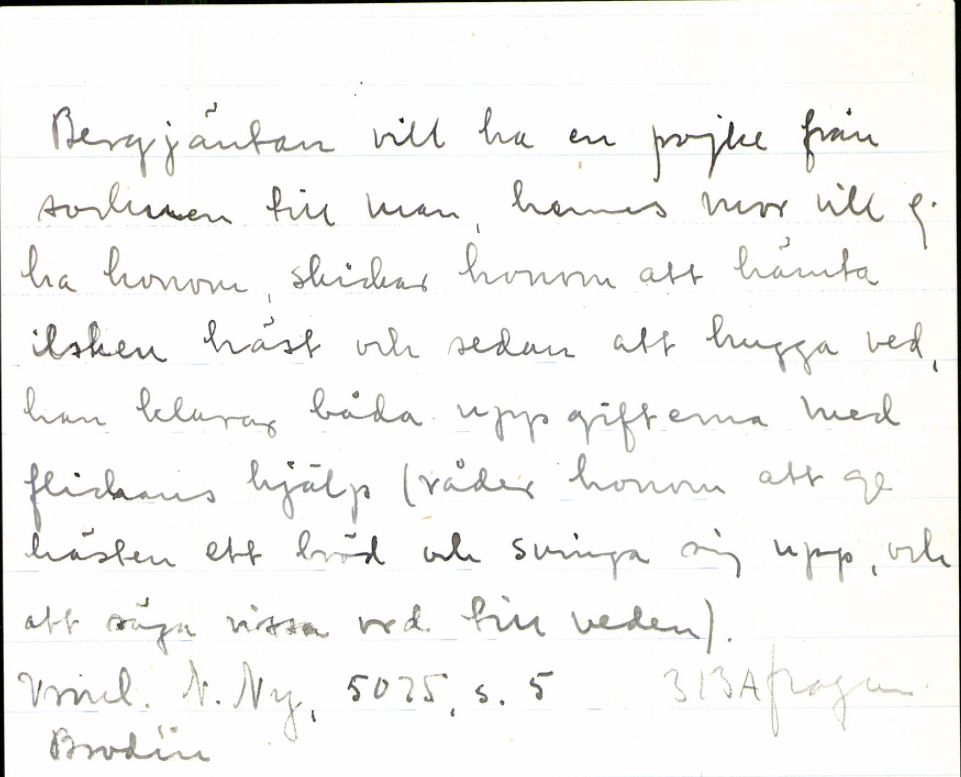 Bergjäntan vill ha en pojke från
socknen till man, hennes mor vill ej
ha honom, skickar honom att hämta
ilsken häst och sedan att hugga ved,
han klarar båda uppgifterna med
flickans hjälp (råder honom att ge
hästen ett bröd och svinga sig upp, och
att säga vissa ord till veden).
Vrml. N. Ny, 5025, s. 5 313A fragm.
Brodin